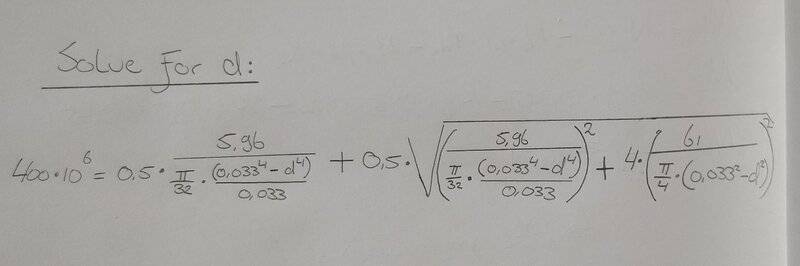 Solve for d:
400·10^6 = 0.5 · 5,96 / (π/32 · (0,033^4 - d^4)/0,033) + 0,5 · √((5,96 / (π/32 · (0,033^4 - d^4)/0,033))^2 + 4 · (61 / (π/4 · (0,033^2 - d^2)))^2)